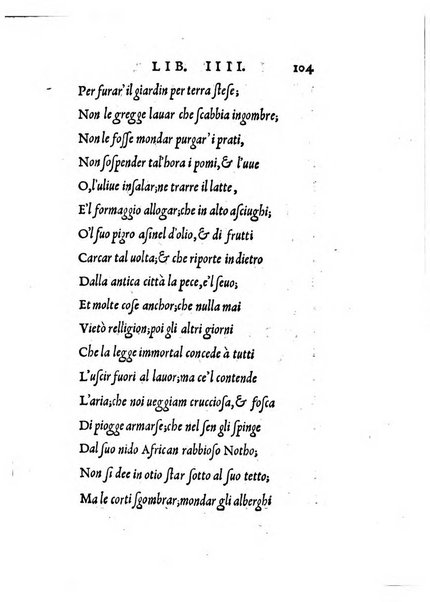 LIB. IIII. 104
Per furar' il giardin per terra ſteſe;
Non le gregge lauar che ſcabbia ingombre;
Non le foſſe mondar purgar' i prati,
Non ſoſpender tal'hora i pomi, & l'uue
O, l'uliue inſalar; ne trarre il latte,
E'l formaggio allogar; che in alto aſciughi;
O'l ſuo pigro aſinel d'olio, & di frutti
Carcar tal uolta; & che riporte in dietro
Dalla antica città la pece, e'l ſeuo;
Et molte coſe anchor; che nulla mai
Vietò relligion; poi gli altri giorni
Che la legge immortal concede à tutti
L'uſcir fuori al lauor; ma ce'l contende
L'aria; che noi ueggiam crucciosa, & foſca
Di piogge armarſe; che nel ſen gli ſpinge
Dal ſuo nido African rabbioſo Notho;
Non ſi dee in otio ſtar ſotto al ſuo tetto;
Ma le corti ſgombrar; mondar gli alberghi